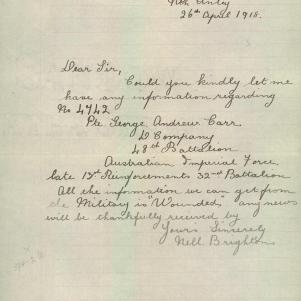 Nth Unley
26th April 1918.
Dear Sir,
Could you kindly let me
have any information regarding
No 4742
Pte George Andrew Carr
D Company
48th Battalion
Australian Imperial Force
late 13th Reinforcements 32nd Battalion
All the information we can get from
the Military is "Wounded" any news
will be thankfully received by
Yours Sincerely
Nell Brighton